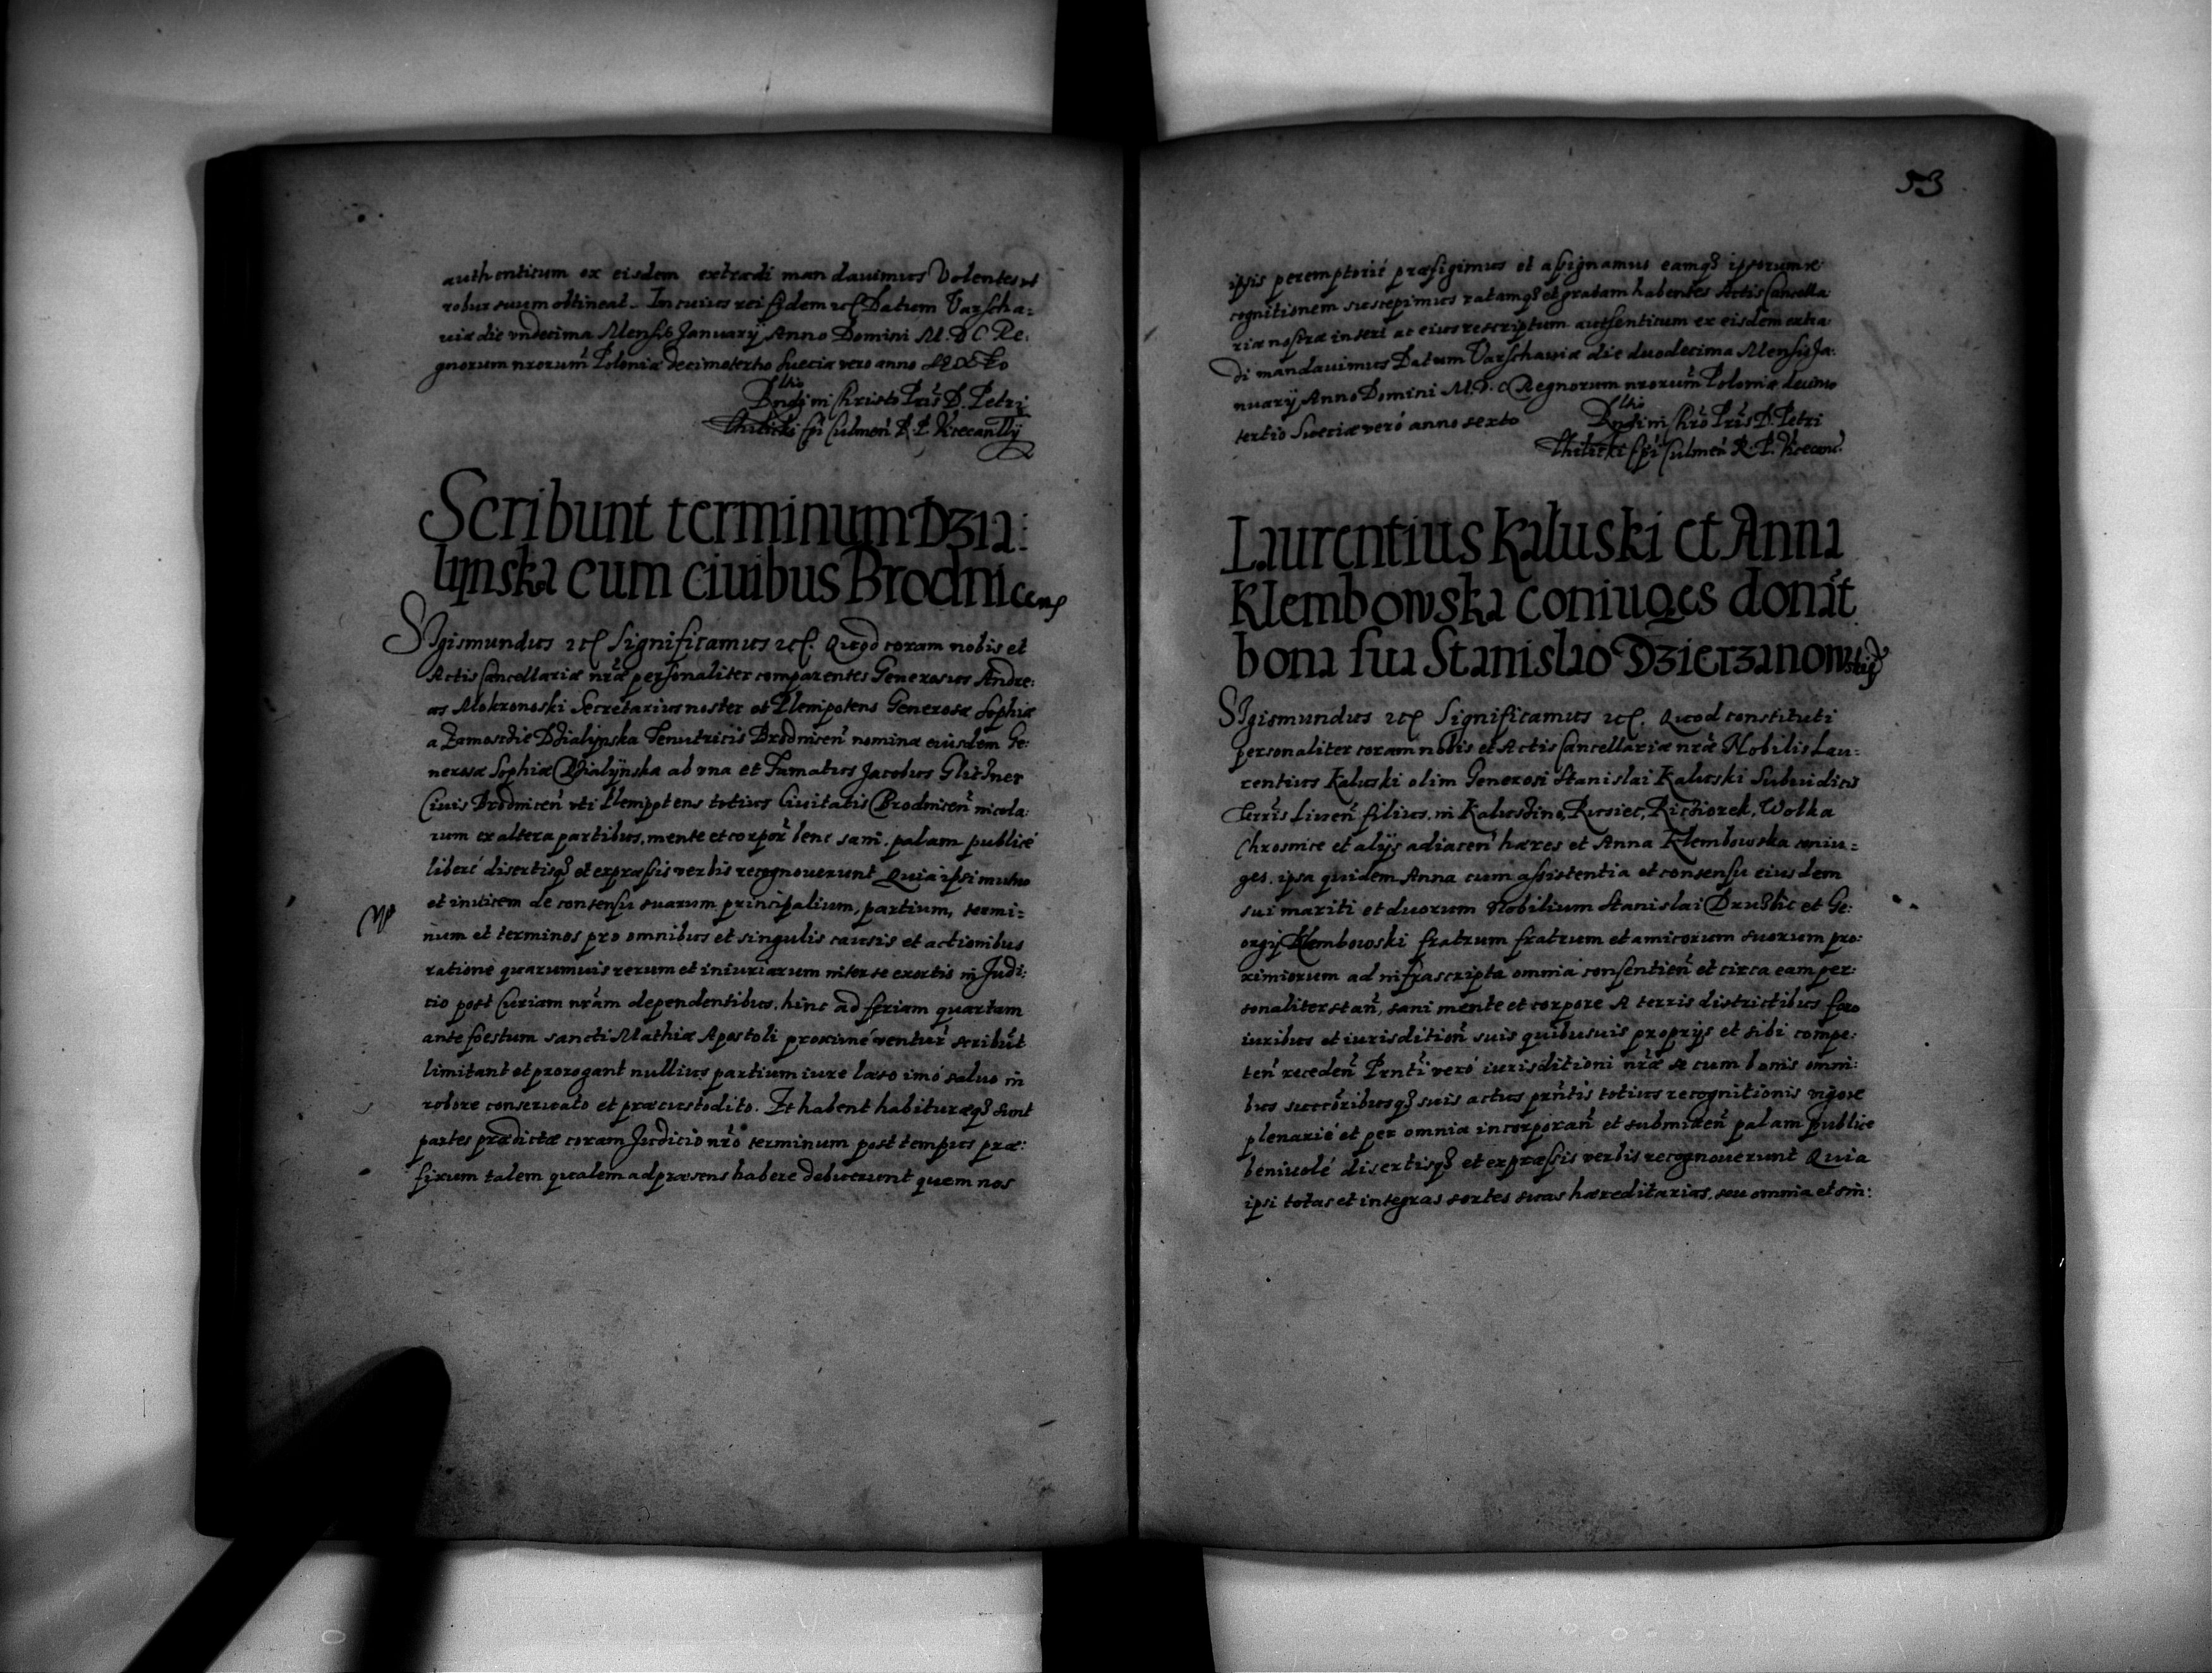 authenticum ex eisdem extradi mandauimus Volentes vt
robur suum obtineat. In cuius rei fidem etc Datum Varscha:
uiæ die vndecima Mensis Januarÿ Anno Domini M. D C Re:
gnorum nrorum Poloniæ decimotertio Sueciæ vero anno
Rndi in Christo Pris D. Petri
Thilicki Epi Culmen R. P. Vicecancllÿ
Scribunt terminum Dzia:
lynska cum ciuibus Brodnicens
Sigismundus etc Significamus etc. Quod coram nobis et
Actis Cancellariæ nræ personaliter comparentes Generosus Andre:
as Mokronoski Secretarius noster et Plenipotens Generosæ Sophiæ
a Zamoscie Dzialÿnska Tenutricis Brodnicen nomine eiusdem Ge:
nerosæ Sophiæ Dzialÿnska ab vna et Famatus Jacobus Glitzner
Ciuis Brodnicen vti Plenipotens totius Ciuitatis Brodnicen nicola:
rum ex altera partibus, mente et corpor bene sani, palam publicé
liberé disertisq et expræssis verbis recognouerunt Quia ipsi mutuo
et inuicem de consensu suarum principalium, partium, termi:
num et terminos pro omnibus et singulis causis et actionibus
ratione quarumuis rerum et iniuriarum inter se exortis in Judi:
cio post Curiam nram dependentibus, hinc ad feriam quartam
ante foestum sancti Mathiæ Apostoli proxime ventur scribunt
limitant et prorogant nullius partium iure læso imó saluo in
robore conseruato et præcustodito. Et habent habituræq sunt
partes prædictæ coram Judicio nro terminum post tempus præ:
fixum talem qualem ad præsens habere debuerunt quem nos
53
ipsis peremptorié præfigimus et assignamus eamq ipsorum re
cognitionem suscepimus ratamq et gratam habentes Actis Cancella
riæ nostræ inseri ac eius rescriptum authenticum ex eisdem extra
di mandauimus Datum Varschauiæ die duodecima Mensis Ja:
nuarÿ Anno Domini M. D. C Regnorum nrorum Poloniæ decimo
tertio Sueciæ veró anno sexto
Rndi in Chro Pris D. Petri
Thilicki Epi Culmen R. P. Vicecanc
Laurentius Kaluski et Anna
Klembowska coniuges donant
bona sua Stanislao Dzierzanowskÿ
Sigismundus etc Significamus etc. Quod constituti
personaliter coram nobis et Actis Cancellariæ nræ Nobilis Lau:
rentius Kaluski olim Generosi Stanislai Kaluski Subiudicis
Terris Liuen filius, in Kaluscino, Rusiec, Richiorek, Wolka
Chrosnice et alijs adiacen hæres et Anna Klembowska coniu:
ges, ipsa quidem Anna cum assistentia et consensu eiusdem
sui mariti et duorum Nobilium Stanislai et Ge:
orgij Klembowski fratrum fratrum et amicorum suorum pro:
ximiorum ad infrascripta omnia consentien et circa eam per:
sonaliter stan, sani mente et corpore A terris districtibus foro
iuribus et iurisdition suis quibusuis proprijs et sibi compe:
ten receden Prnti veró iurisditioni nræ se cum bonis omni:
bus succoribusq suis actus prntis totius recognitionis vigore
plenarié et per omnia incorporan et submitten palam publice
beniuolé disertisq et expræssis verbis recognouerunt Quia
ipsi totas et integras sortes suas hæreditarias, seu omnia et sin: